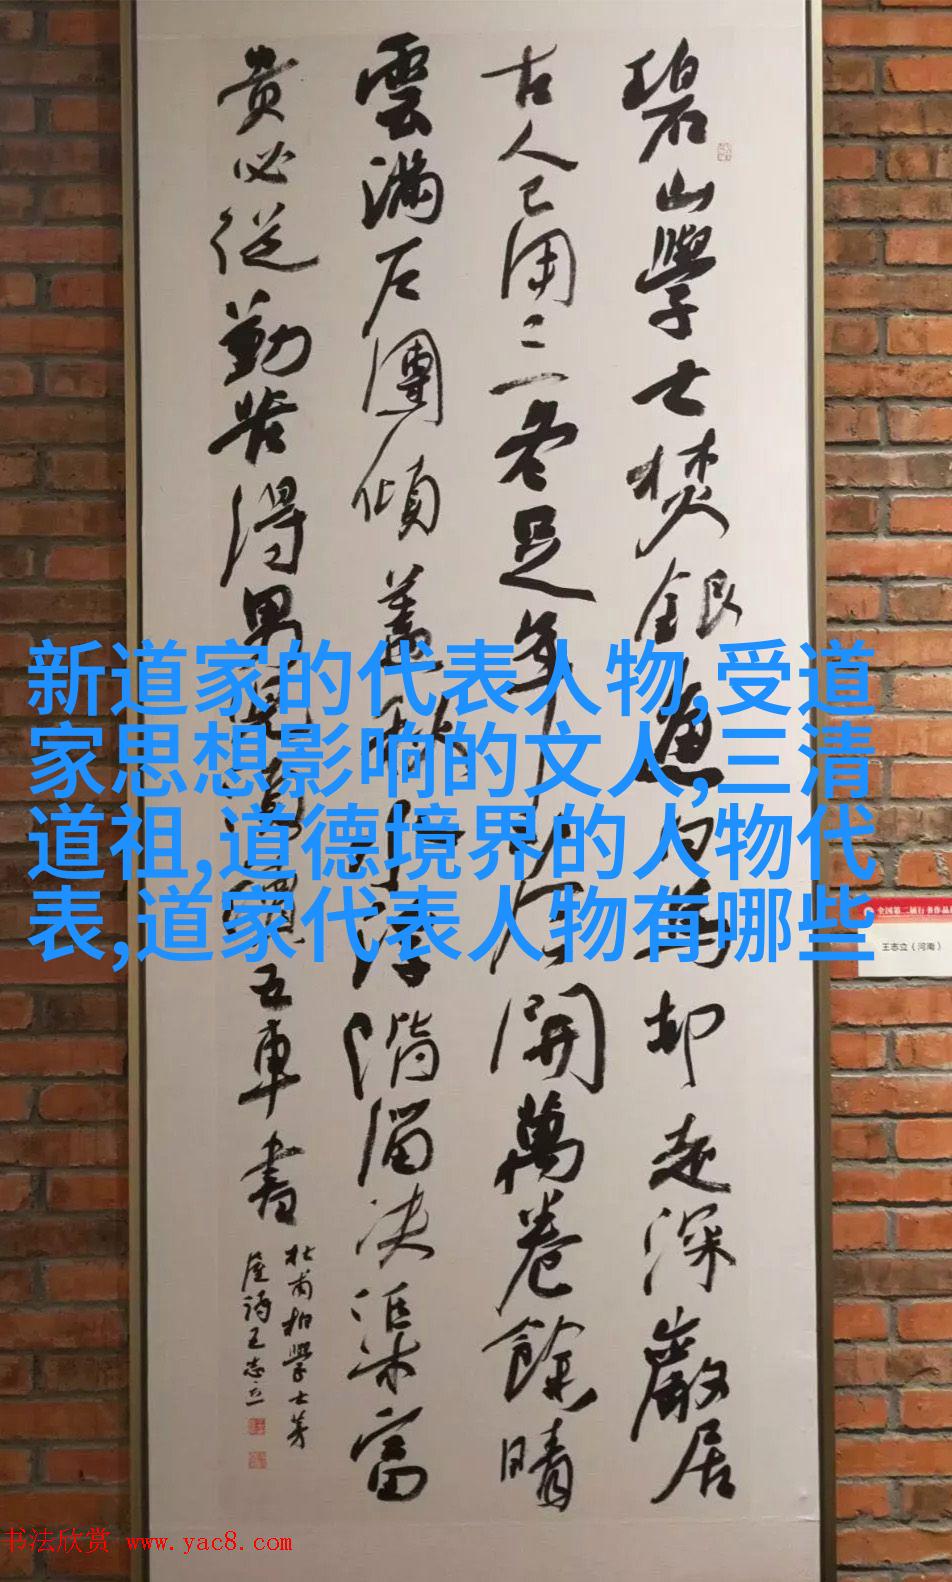 碧山學士焚銀魚白馬却走深巖居
古人已用三冬足年少今開萬卷餘晴
雲滿户團傾蓋秋水浮階溜决渠富
貴必從勤苦得男兒須讀五車書
杜甫柏學士茅
屋詩王志立
新道家的代表人物,受道
家思想影响的文人,三清
道祖,道德境界的人物代
表,道家代表人物有哪些
全国第二届行书作品
王志立（河南）
书法欣赏 www.yac8.com